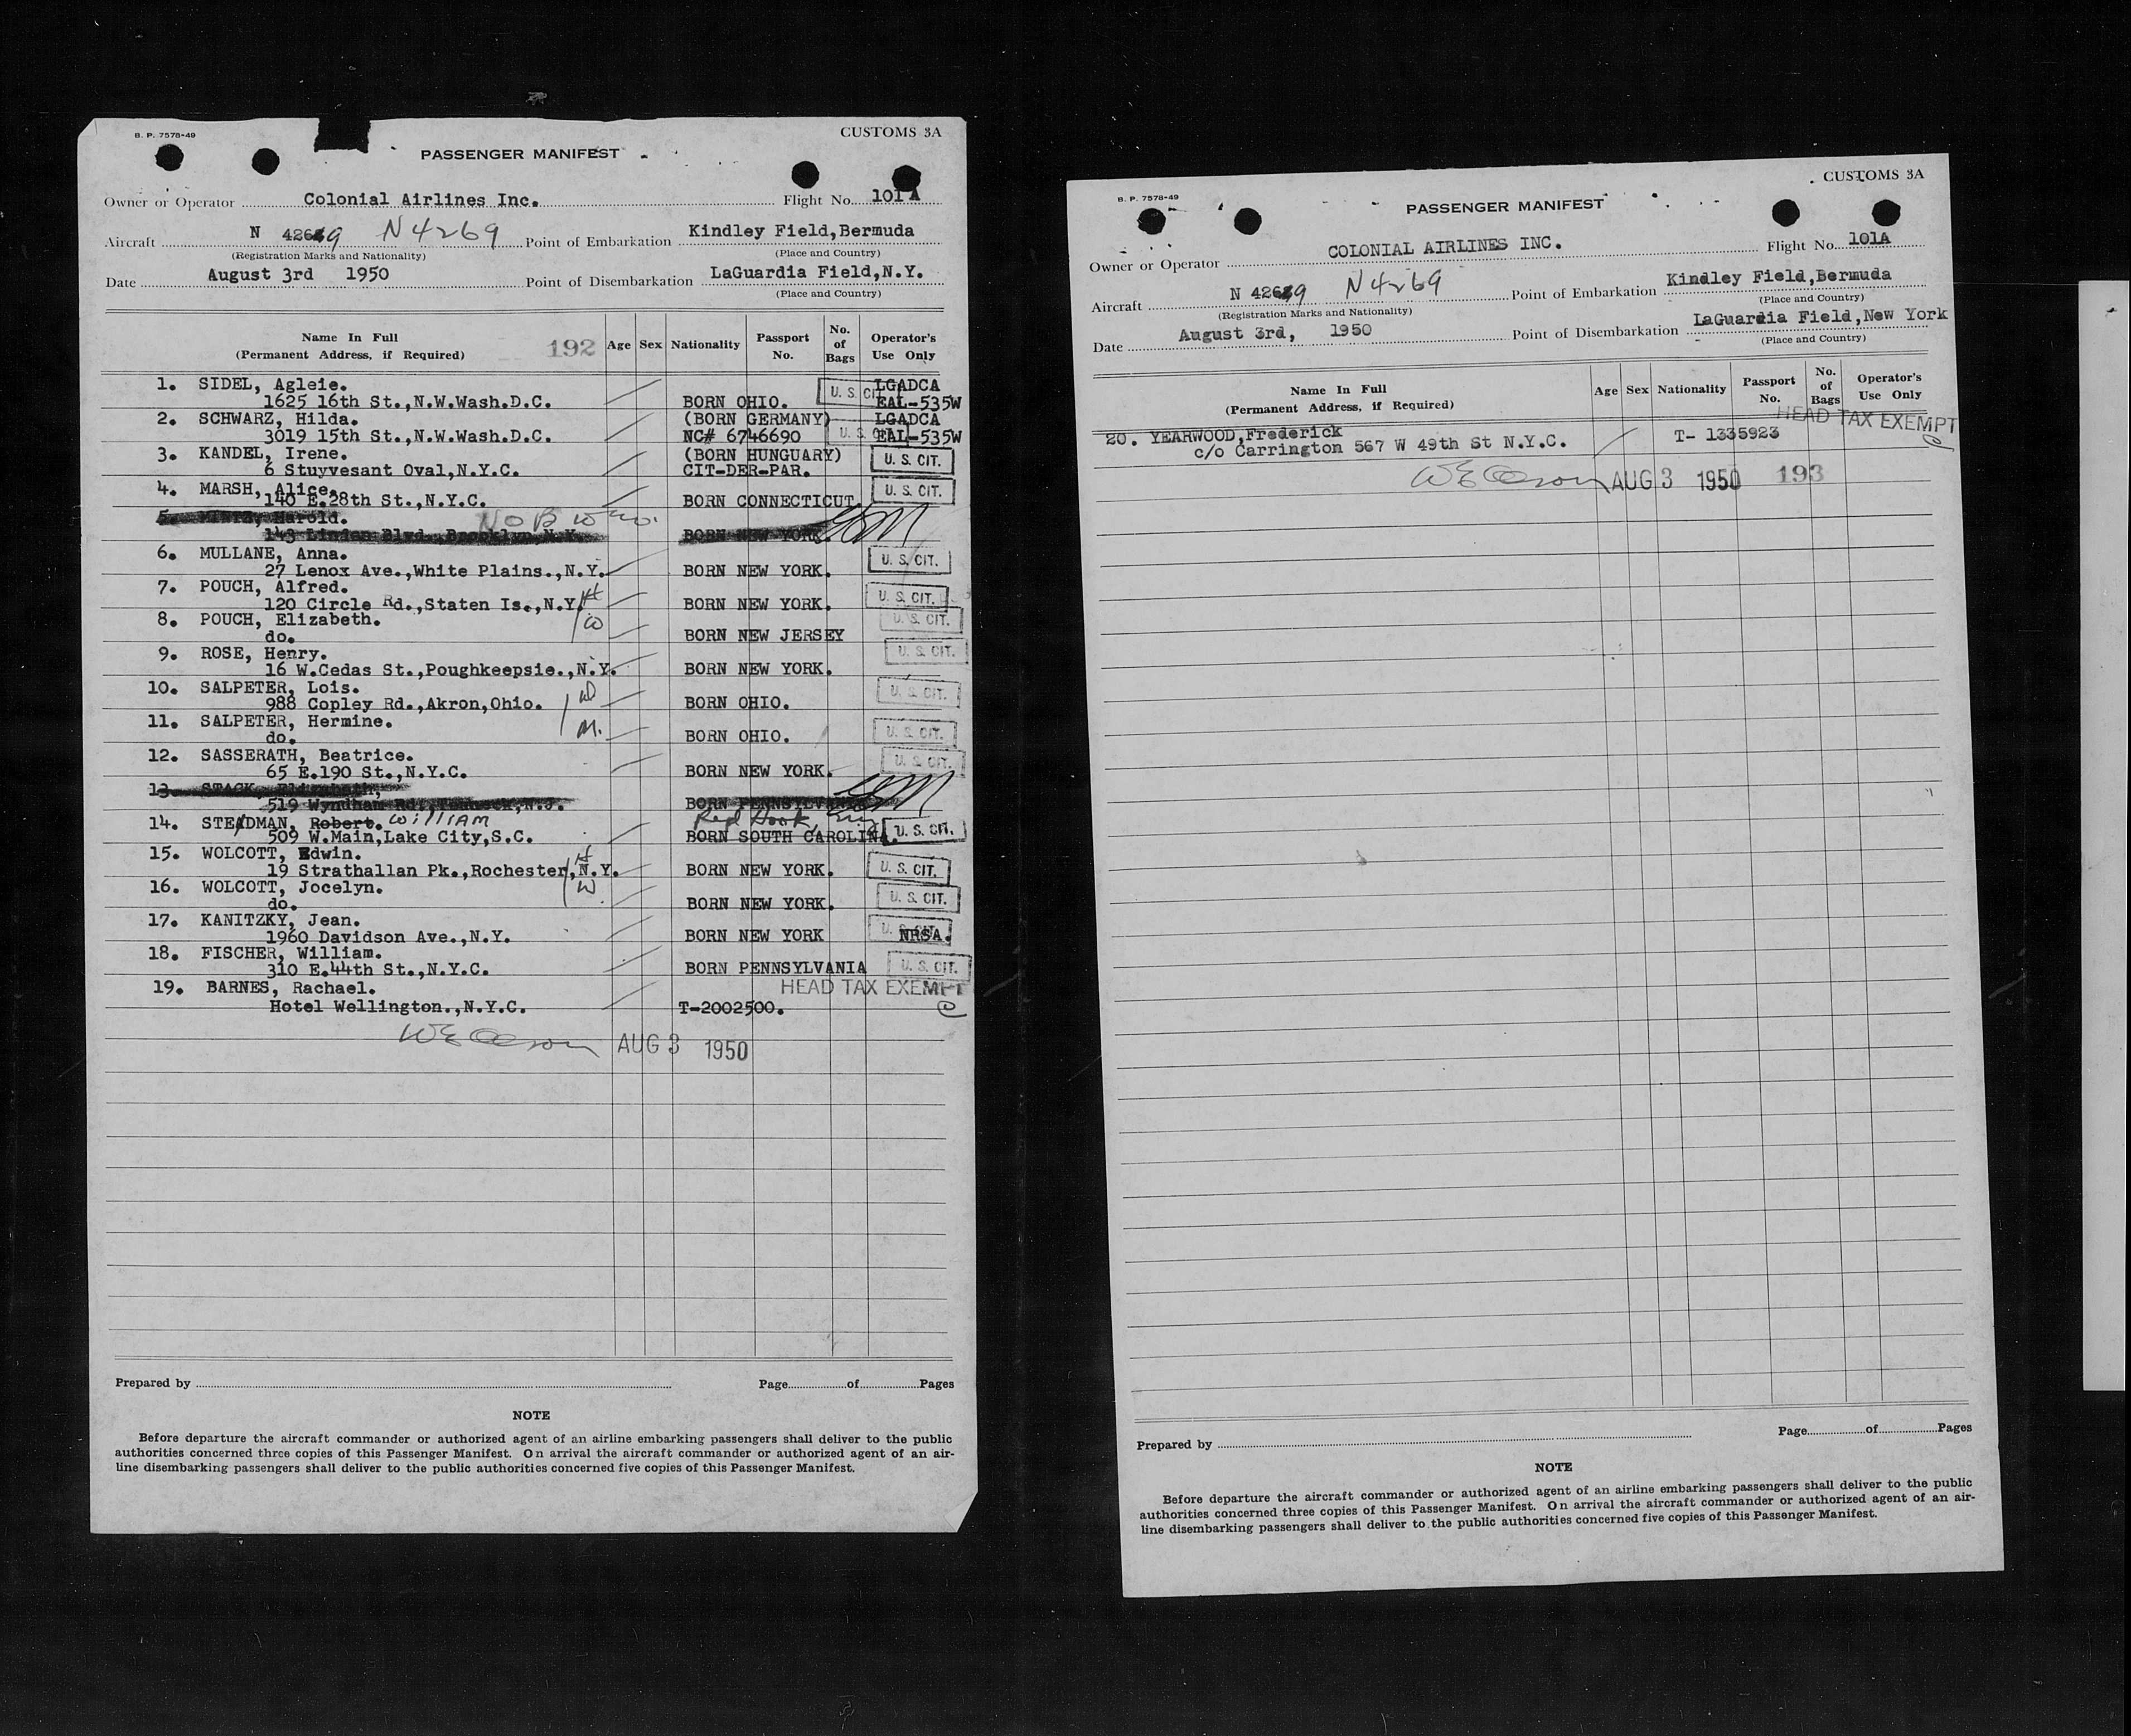 B. P. 7578-49
CUSTOMS 3A
PASSENGER MANIFEST
Owner or Operator Colonial Airlines Inc. Flight No. 101 A
Aircraft N 4269 N4269 Point of Embarkation Kindley Field,Bermuda
(Registration Marks and Nationality) (Place and Country)
Date August 3rd 1950 Point of Disembarkation LaGuardia Field,N.Y.
(Place and Country)
Name In Full (Permanent Address, if Required) 192 Age Sex Nationality Passport No. No. of Bags Operator's Use Only
1. SIDEL, Agleie. U. S. CIT. LGADCA
1625 16th St.,N.W.Wash.D.C. BORN OHIO. EAL-535W
2. SCHWARZ, Hilda. (BORN GERMANY) LGADCA
3019 15th St.,N.W.Wash.D.C. NC# 6746690 U. S. CIT. EAL-535W
3. KANDEL, Irene. (BORN HUNGUARY)
6 Stuyvesant Oval,N.Y.C. CIT-DER-PAR. U. S. CIT.
4. MARSH, Alice.
140 E.28th St.,N.Y.C. BORN CONNECTICUT. U. S. CIT.
5. Harold. NO B
143 Linden Blvd.,Brooklyn,N.Y. BORN NEW YORK.
6. MULLANE, Anna.
27 Lenox Ave.,White Plains.,N.Y. BORN NEW YORK. U. S. CIT.
7. POUCH, Alfred.
120 Circle Rd.,Staten Is.,N.Y. H BORN NEW YORK. U. S. CIT.
8. POUCH, Elizabeth. W
do. BORN NEW JERSEY U. S. CIT.
9. ROSE, Henry.
16 W.Cedas St.,Poughkeepsie.,N.Y. BORN NEW YORK. U. S. CIT.
10. SALPETER, Lois.
988 Copley Rd.,Akron,Ohio. D BORN OHIO. U. S. CIT.
11. SALPETER, Hermine. M.
do. BORN OHIO. U. S. CIT.
12. SASSERATH, Beatrice.
65 E.190 St.,N.Y.C. BORN NEW YORK. U. S. CIT.
13. STACK, Elizabeth,
519 Wyndham Rd., Teaneck,N.J. BORN PENNSYLVANIA
14. STEADMAN, Robert. William Red Hook,
509 W.Main,Lake City,S.C. BORN SOUTH CAROLINA. U. S. CIT.
15. WOLCOTT, Edwin. H
19 Strathallan Pk.,Rochester,N.Y. BORN NEW YORK. U. S. CIT.
16. WOLCOTT, Jocelyn. W
do. BORN NEW YORK. U. S. CIT.
17. KANITZKY, Jean.
1960 Davidson Ave.,N.Y. BORN NEW YORK U. S. CIT. NRSA.
18. FISCHER, William.
310 E.44th St.,N.Y.C. BORN PENNSYLVANIA U. S. CIT.
19. BARNES, Rachael. HEAD TAX EXEMPT
Hotel Wellington.,N.Y.C. T-2002500.
AUG 3 1950
Prepared by Page of Pages
NOTE
Before departure the aircraft commander or authorized agent of an airline embarking passengers shall deliver to the public
authorities concerned three copies of this Passenger Manifest. On arrival the aircraft commander or authorized agent of an air-
line disembarking passengers shall deliver to the public authorities concerned five copies of this Passenger Manifest.
B. P. 7578-49
CUSTOMS 3A
PASSENGER MANIFEST
Owner or Operator COLONIAL AIRLINES INC. Flight No. 101A
Aircraft N 4269 N4269 Point of Embarkation Kindley Field,Bermuda
(Registration Marks and Nationality) (Place and Country)
Date August 3rd, 1950 Point of Disembarkation LaGuardia Field,New York
(Place and Country)
Name In Full (Permanent Address, if Required) Age Sex Nationality Passport No. No. of Bags Operator's Use Only
HEAD TAX EXEMPT
20. YEARWOOD,Frederick T- 1335923
c/o Carrington 567 W 49th St N.Y.C.
AUG 3 1950 193
Prepared by Page of Pages
NOTE
Before departure the aircraft commander or authorized agent of an airline embarking passengers shall deliver to the public
authorities concerned three copies of this Passenger Manifest. On arrival the aircraft commander or authorized agent of an air-
line disembarking passengers shall deliver to the public authorities concerned five copies of this Passenger Manifest.